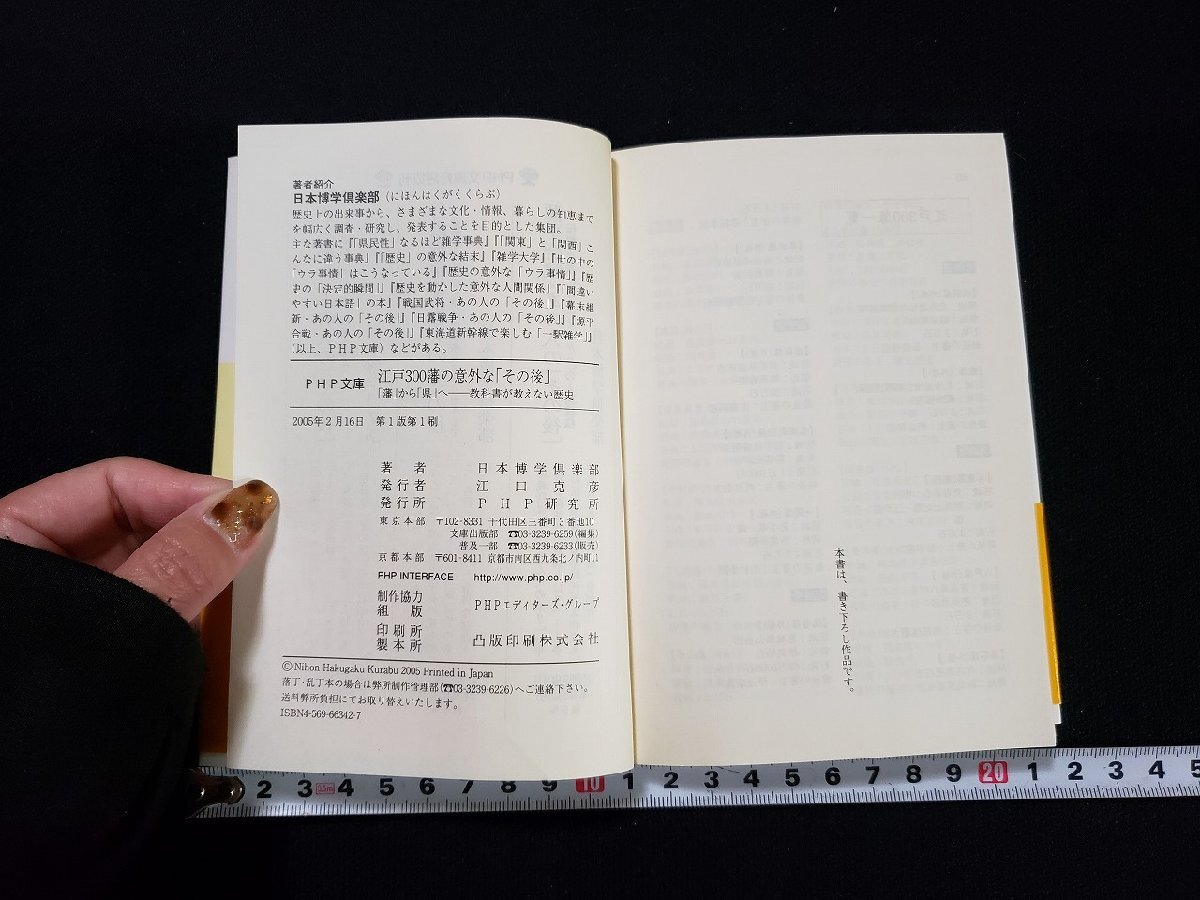 著者紹介
日本博学倶楽部(にほんはくがくくらぶ)
歴史上の出来事から、さまざまな文化・情報、暮らしの知恵まで
を幅広く調査・研究し、発表することを目的とした集団。
主な著書に『「県民性」なるほど雑学事典』『「関東」と「関西」こ
んなに違う事典』『「歴史」の意外な結末』『雑学大学』『世の中の
「ウラ事情」はこうなっている』『歴史の意外な「ウラ事情」』『歴
史の「決定的瞬間」』『歴史を動かした意外な人間関係』『「間違い
やすい日本語」の本』『戦国武将・あの人の「その後」』『幕末維
新・あの人の「その後」』『日露戦争・あの人の「その後」』『源平
合戦・あの人の「その後」』『東海道新幹線で楽しむ「一駅雑学」』
(以上、PHP文庫)などがある。
PHP文庫 江戸300藩の意外な「その後」
「藩」から「県」へ――教科書が教えない歴史
2005年2月16日 第1版第1刷
著者 日本博学倶楽部
発行者 江口克彦
発行所 PHP研究所
東京本部 〒102-8331 千代田区三番町3番地10
文庫出版部 ☎03-3239-6259(編集)
普及一部 ☎03-3239-6233(販売)
京都本部 〒601-8411 京都市南区西九条北ノ内町11
PHP INTERFACE http://www.php.co.jp/
制作協力
組版 PHPエディターズ・グループ
印刷所
製本所 凸版印刷株式会社
©Nihon Hakugaku Kurabu 2005 Printed in Japan
落丁・乱丁本の場合は弊所制作管理部(☎03-3239-6226)へご連絡下さい。
送料弊所負担にてお取り替えいたします。
ISBN4-569-66342-7
本書は、書き下ろし作品です。
2 3 3.5m 4 5 6 7 8 9 10 1 2 3 4 5 6 7 8 9 20 1 2 3 4 5